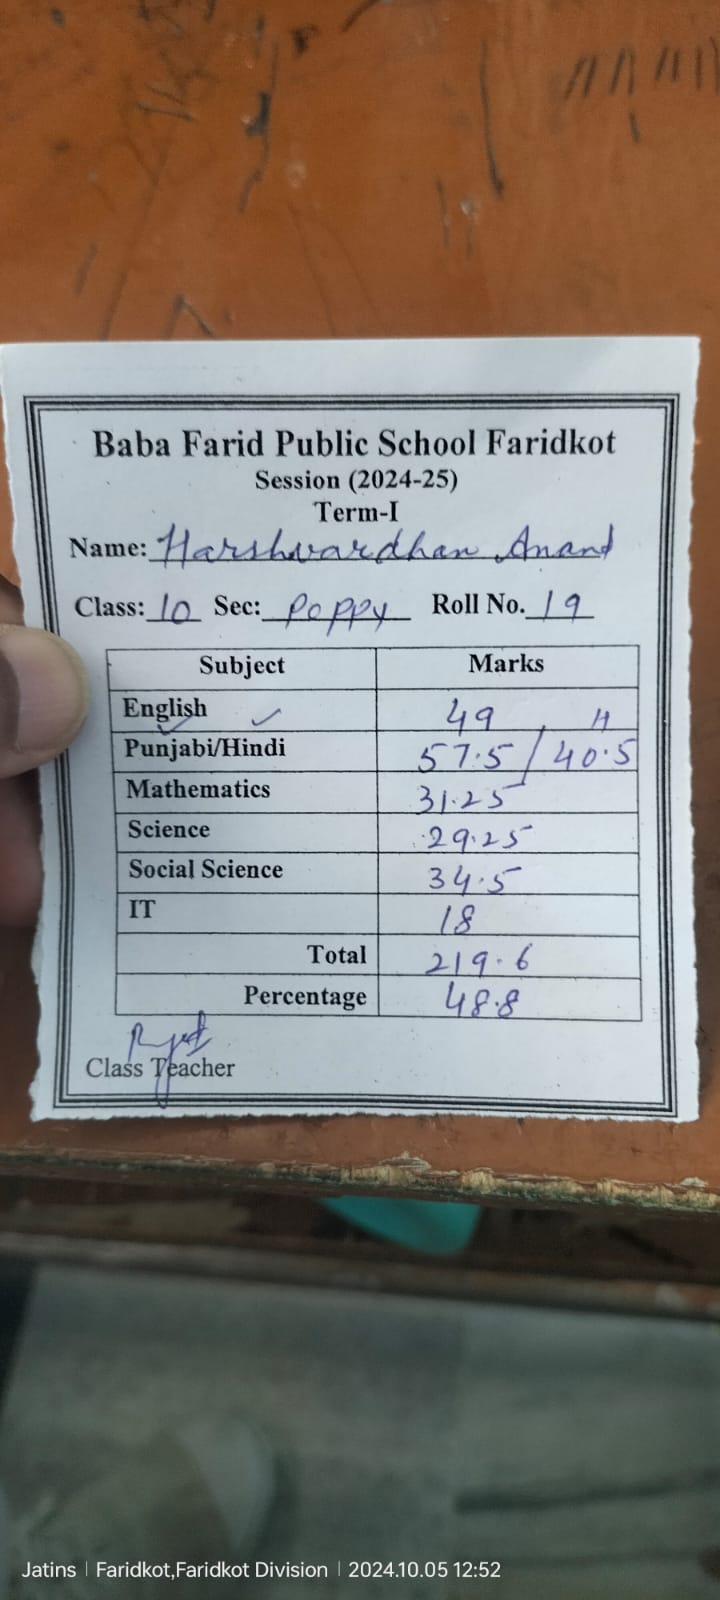 Baba Farid Public School Faridkot
Session (2024-25)
Term-I
Name: Harshvardhan Anand
Class: 10 Sec: Poppy Roll No. 19
Subject Marks
English 49 H
Punjabi/Hindi 57.5 / 40.5
Mathematics 31.25
Science 29.25
Social Science 34.5
IT 18
Total 219.6
Percentage 48.8
Class Teacher
Jatins | Faridkot,Faridkot Division | 2024.10.05 12:52